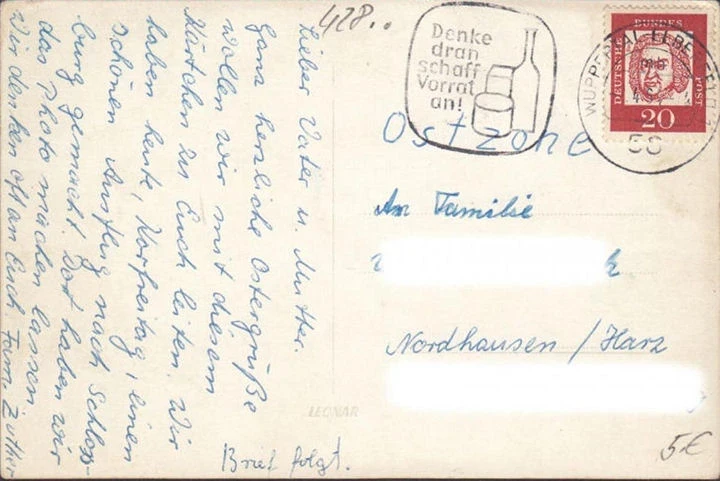 428..
Denke
dran
schaff
Vorrat
an!
DEUTSCHE BUNDESPOST
20
WUPPERTAL-ELBERFELD
56
Ostzone
An Familie
Nordhausen / Harz
Lieber Vater u. Mutter.
Ganz herzliche Ostergrüße
wollen wir mit diesem
Kärtchen zu Euch leiten. Wir
haben heute, Karfreitag, einen
schönen Ausflug nach Schloss-
burg gemacht. Dort haben wir
das Photo machen lassen
Wir denken oft an Euch Fam. Züther
Brief folgt.
LEONAR
5€